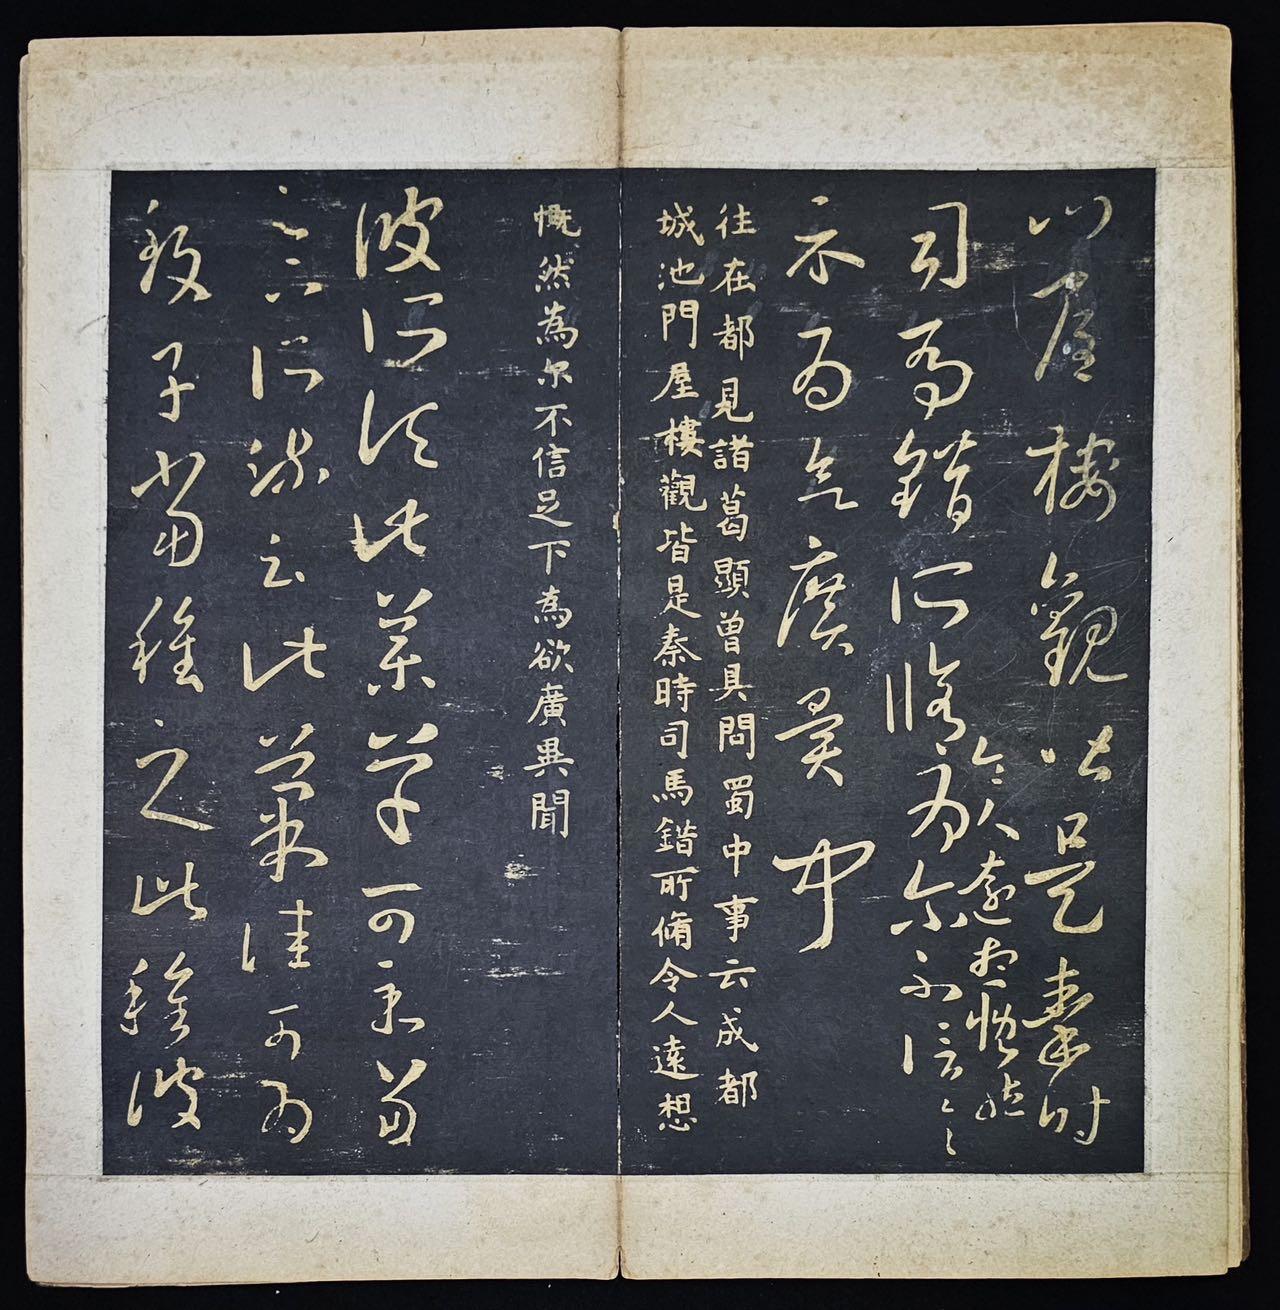 門屋樓觀皆是秦時
司馬錯所脩令人遠想慨然
為尔不信一一
示為欲廣異聞
往在都見諸葛顯曾具問蜀中事云成都
城池門屋樓觀皆是秦時司馬錯所脩令人遠想
慨然為尔不信足下為欲廣異聞
彼所須此藥草可示當
足下所疏云此菓佳可為
致子當種之此種彼